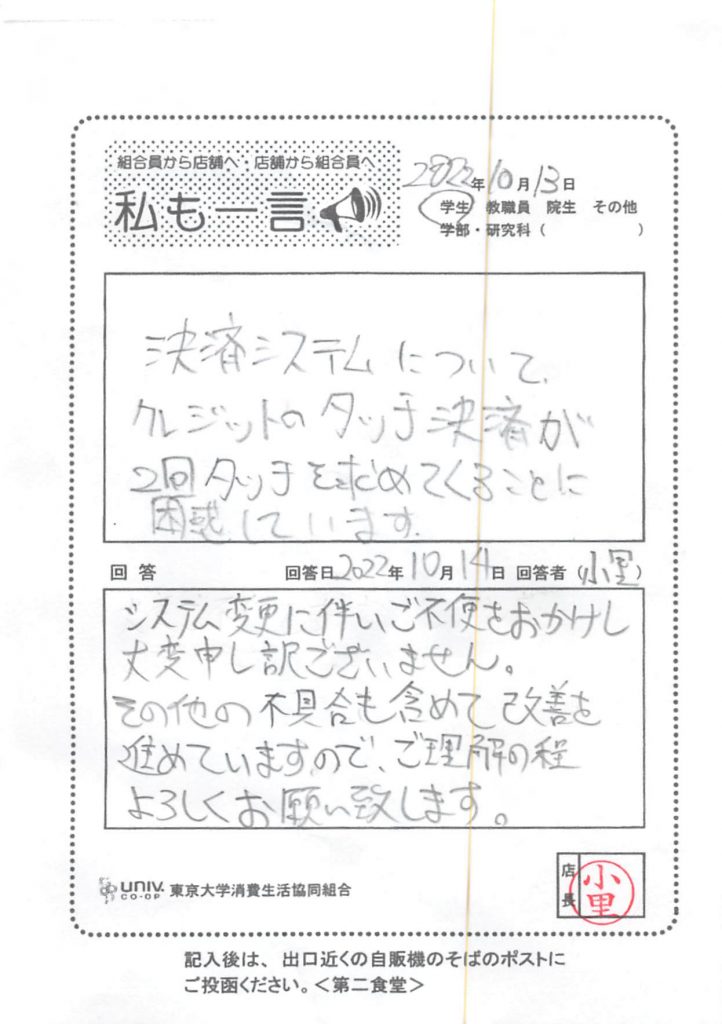 組合員から店舗へ・店舗から組合員へ
私も一言
2022年10月13日
学生 教職員 院生 その他
学部・研究科（ ）
決済システムについて、
クレジットのタッチ決済が
2回タッチを求めてくることに
困惑しています。
回答 回答日2022年10月14日 回答者（小里）
システム変更に伴いご不便をおかけし
大変申し訳ございません。
その他の不具合も含めて改善を
進めていますので、ご理解の程
よろしくお願い致します。
UNIV. CO-OP 東京大学消費生活協同組合
店長 小里
記入後は、出口近くの自販機のそばのポストに
ご投函ください。＜第二食堂＞